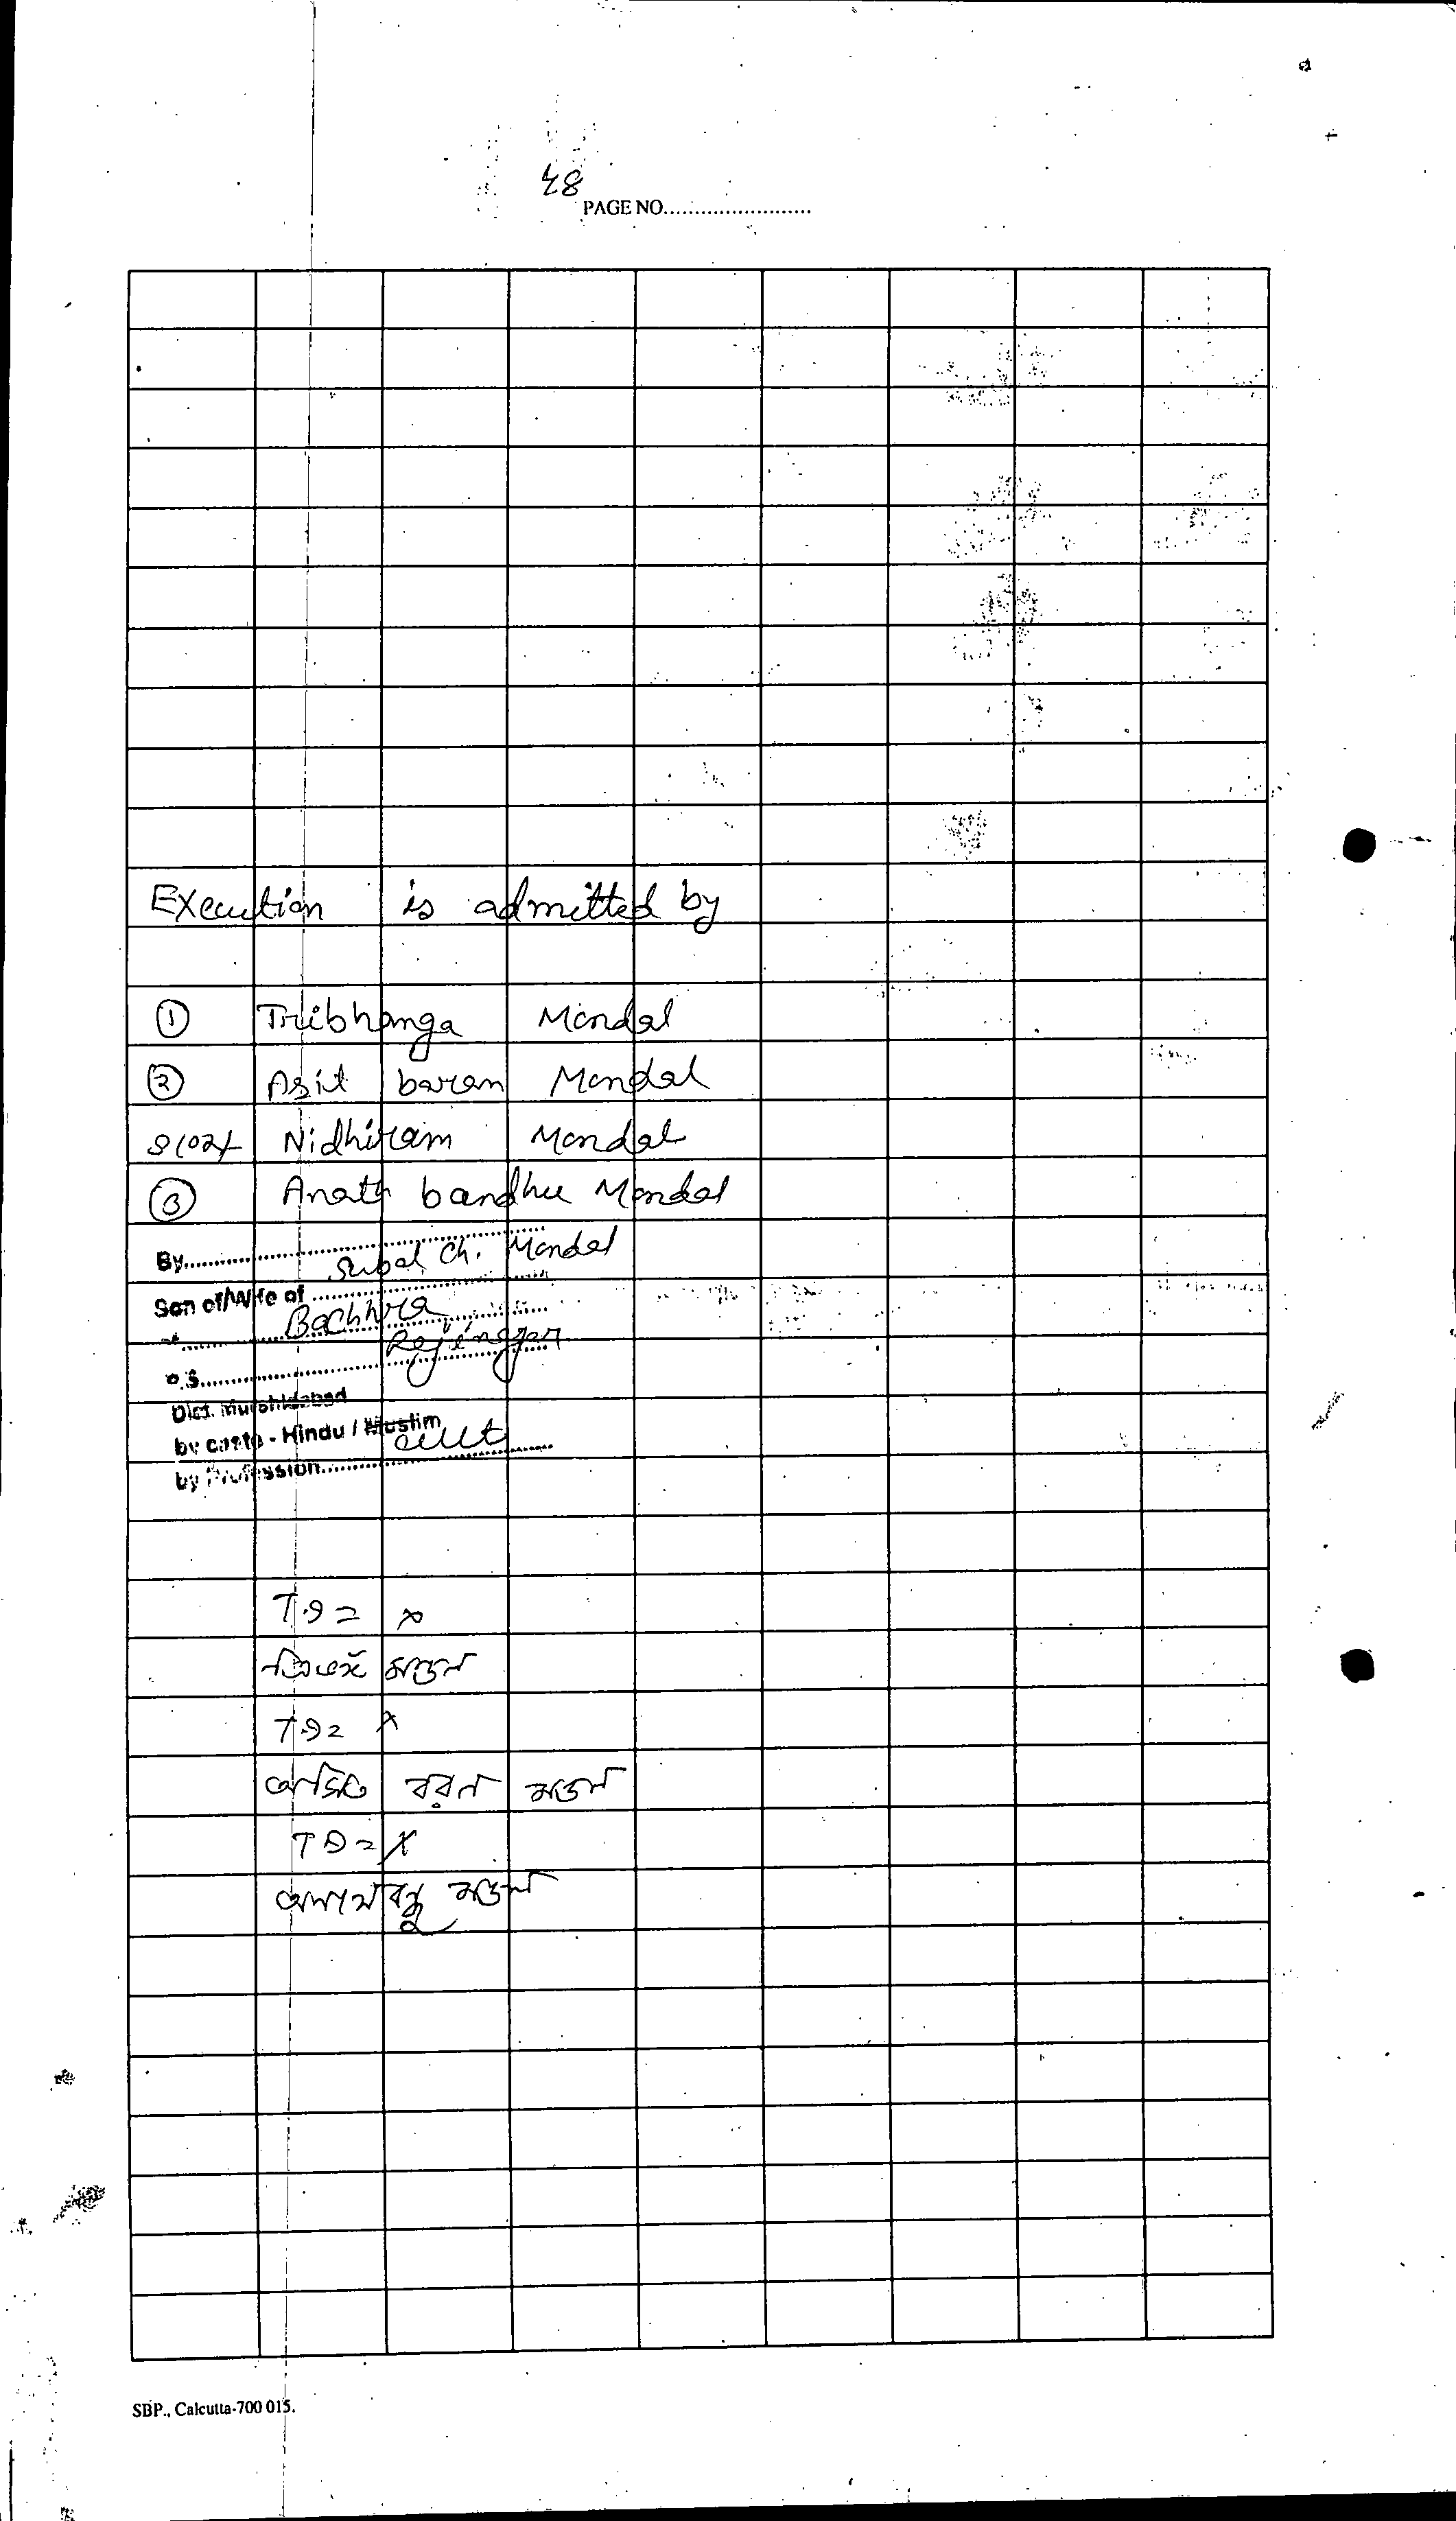 48
PAGE NO..........................
Execution is admitted by
① Tribhanga Mondal
② Asit baran Mondal
S/o 2/ Nidhiram Mondal
③ Anath bandhu Mondal
By.......... Subal Ch. Mondal
Son of/Wife of ..........
Bachhra
P.S.......... Rejinagar
Dist. Murshidabad
by caste - Hindu / Muslim
by Profession.......... cult
ত্রিভঙ্গ মণ্ডল
অসিত বরন মণ্ডল
অনাথ বন্ধু মণ্ডল
SBP., Calcutta-700 015.